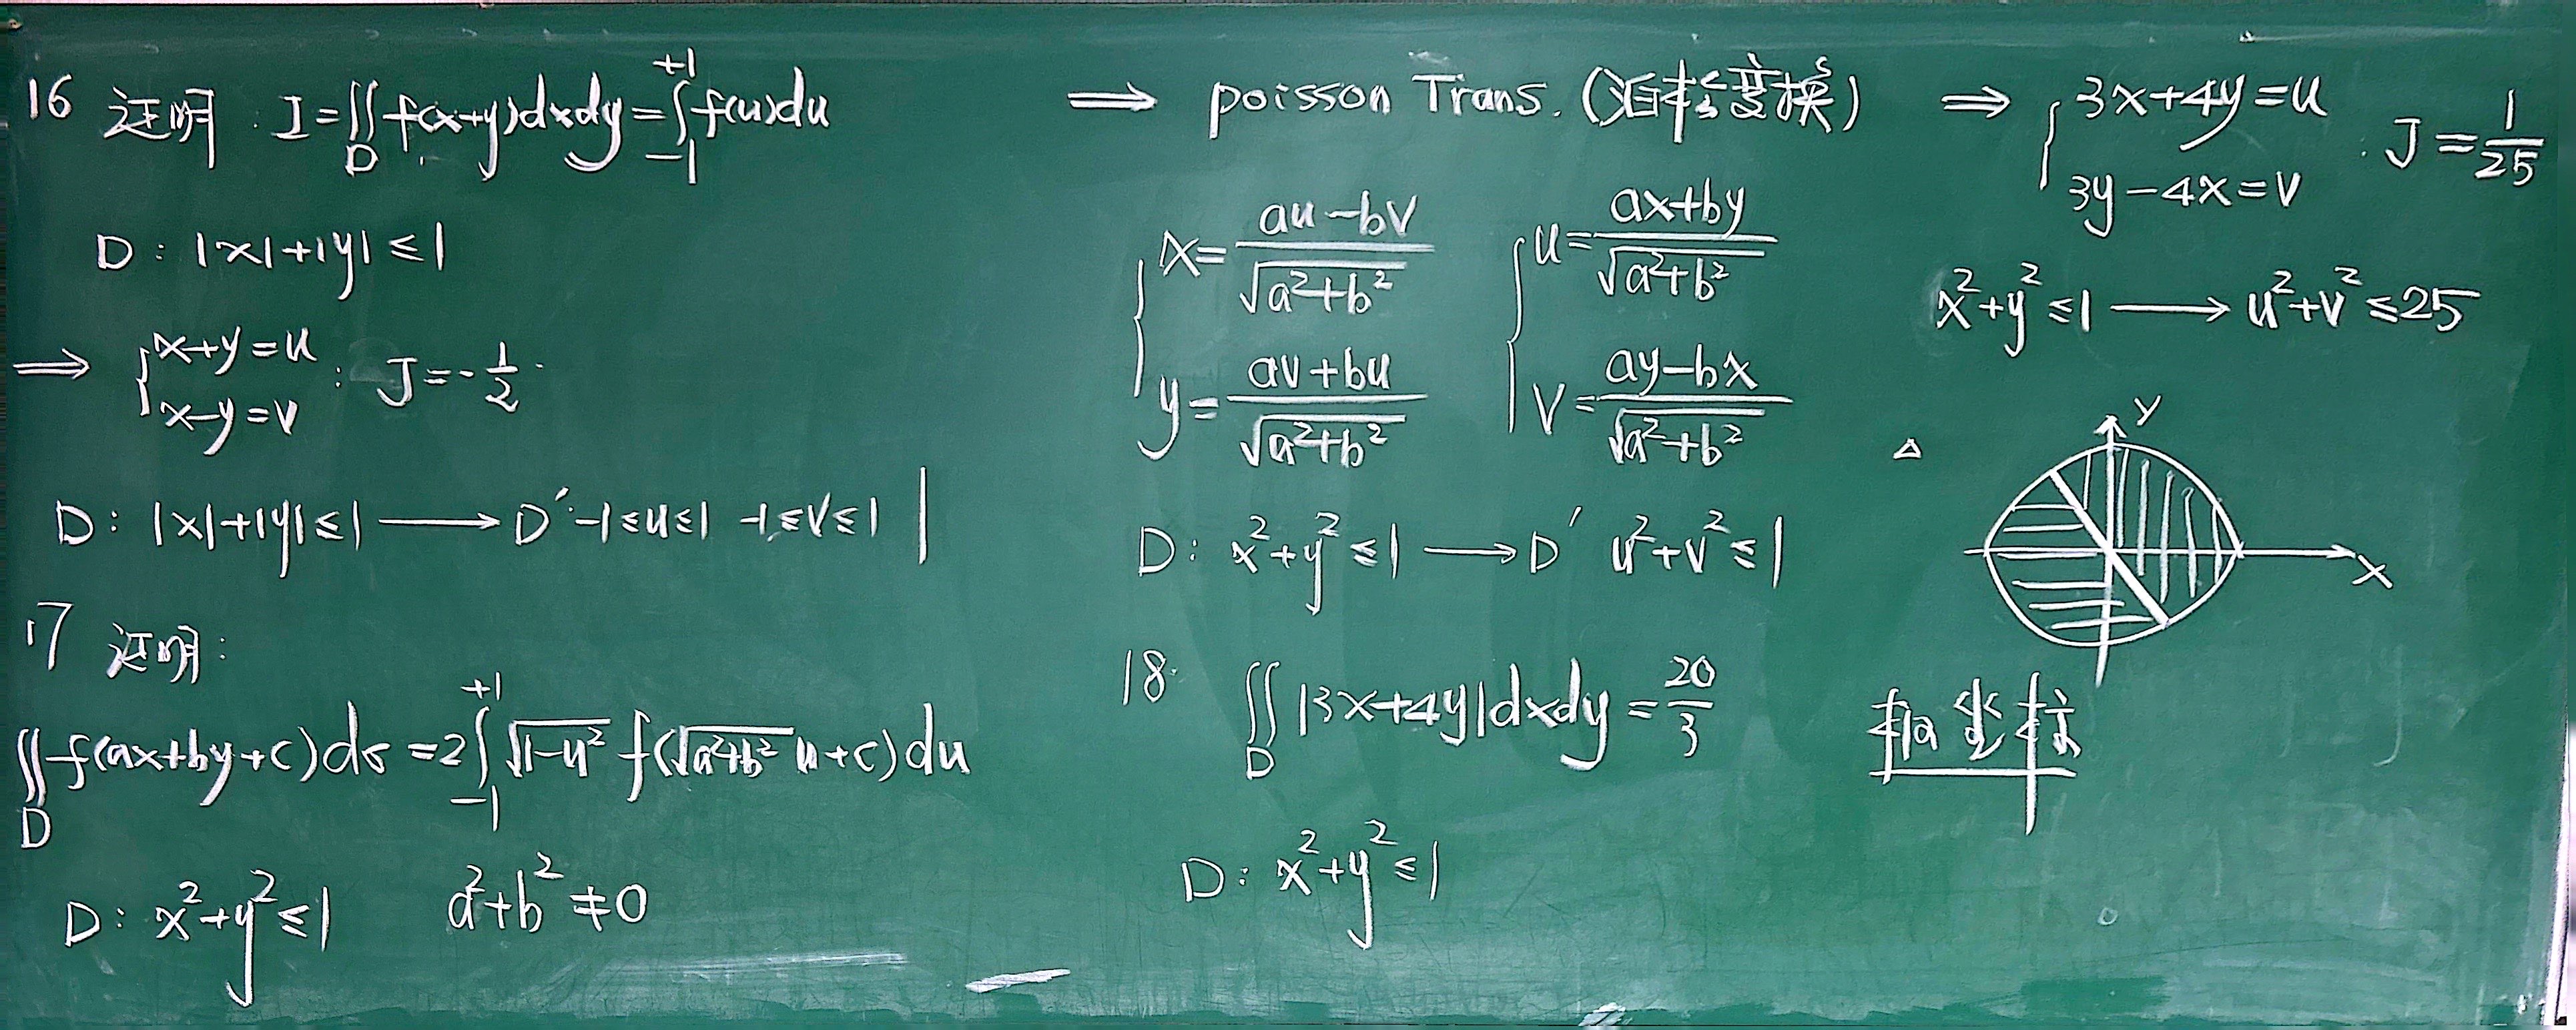 16 证明: I=∬_D f(x+y)dxdy=∫_{-1}^{+1} f(u)du
D: |x|+|y|≤1
⟹ { x+y=u
x-y=v : J=-1/2
D: |x|+|y|≤1 ⟶ D′ -1≤u≤1 -1≤v≤1
17 证明:
∬_D f(ax+by+c)dσ=2∫_{-1}^{+1} √(1-u²) f(√(a²+b²) u+c)du
D: x²+y²≤1 a²+b²≠0
⟹ poisson Trans. (泊松变换)
{ x=(au-bv)/√(a²+b²) { u=(ax+by)/√(a²+b²)
y=(av+bu)/√(a²+b²) v=(ay-bx)/√(a²+b²)
D: x²+y²≤1 ⟶ D′ u²+v²≤1
18. ∬_D |3x+4y|dxdy=20/3
D: x²+y²≤1
⟹ { 3x+4y=u
3y-4x=v : J=1/25
x²+y²≤1 ⟶ u²+v²≤25
△
y
x
极坐标